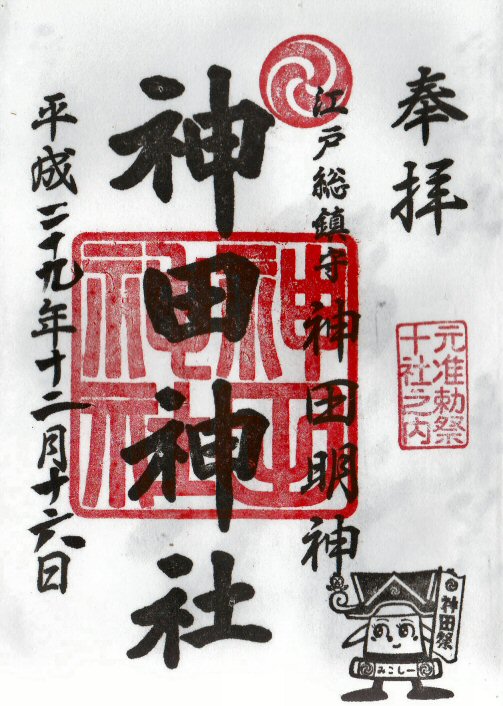 奉拝
元准勅祭
十社之内
江戸総鎮守 神田明神
神田神社
神田神社
平成二十九年十二月十六日
神田祭
みこしー